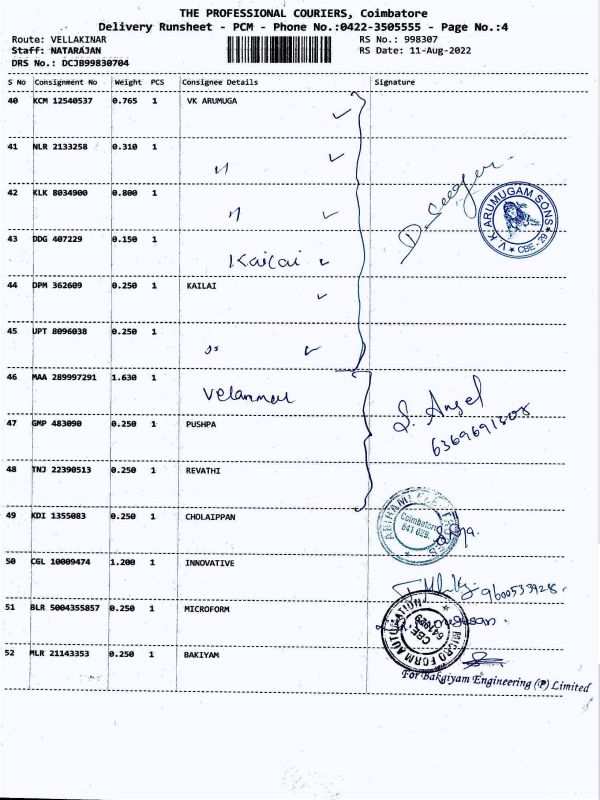 THE PROFESSIONAL COURIERS, Coimbatore
Delivery Runsheet - PCM - Phone No.:0422-3505555 - Page No.:4
Route: VELLAKINAR RS No.: 998307
Staff: NATARAJAN RS Date: 11-Aug-2022
DRS No.: DCJB99830704
S No Consignment No Weight PCS Consignee Details Signature
40 KCM 12540537 0.765 1 VK ARUMUGA
41 NLR 2133258 0.310 1
42 KLK 8034900 0.800 1
V.K. ARUMUGAM SONS ★ CBE - 29 ★
43 DDG 407229 0.150 1 Kailai
44 DPM 362609 0.250 1 KAILAI
45 UPT 8096038 0.250 1
46 MAA 289997291 1.630 1
47 GMP 483090 0.250 1 PUSHPA
48 TNJ 22390513 0.250 1 REVATHI
49 KDI 1355083 0.250 1 CHOLAIPPAN
ABIRAMI
Coimbatore
641 029.
50 CGL 10009474 1.200 1 INNOVATIVE
9600533928
51 BLR 5004355857 0.250 1 MICROFORM
MICRO FORM AUTOMATION
CBE
641029
52 MLR 21143353 0.250 1 BAKIYAM
For Bakgiyam Engineering (P) Limited